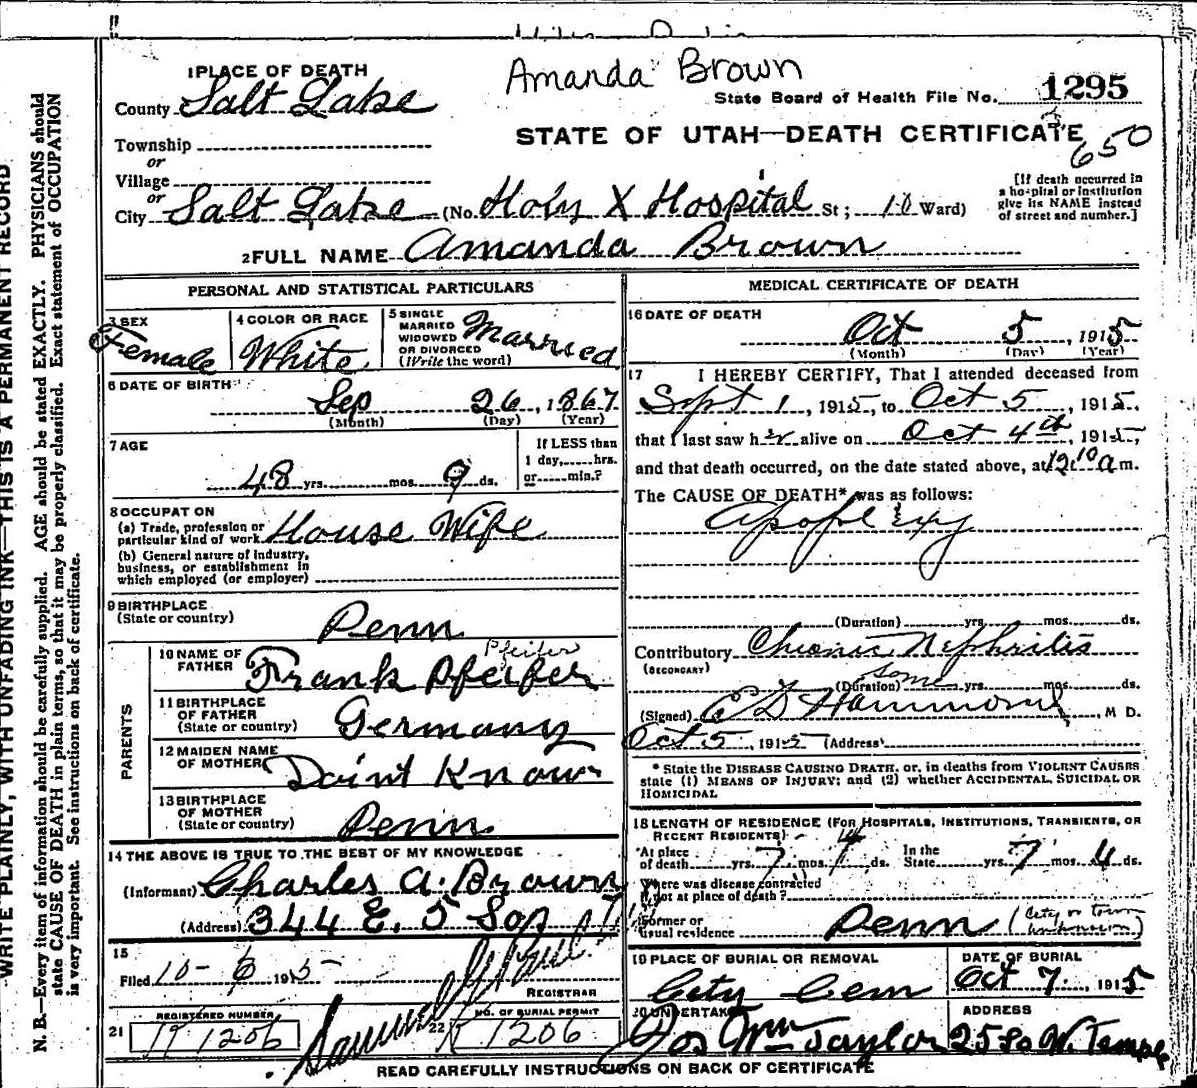 Amanda Brown
1 PLACE OF DEATH
County Salt Lake
State Board of Health File No. 1295
STATE OF UTAH—DEATH CERTIFICATE
650
Township
or
Village
or
City Salt Lake (No. Holy X Hospital St; 10 Ward)
[If death occurred in a hospital or institution give its NAME instead of street and number.]
2 FULL NAME Amanda Brown
PERSONAL AND STATISTICAL PARTICULARS
3 SEX
Female
4 COLOR OR RACE
White
5 SINGLE
MARRIED
WIDOWED
OR DIVORCED
(Write the word)
Married
6 DATE OF BIRTH
Sep 26, 1867
(Month) (Day) (Year)
7 AGE
48 yrs. mos. 9 ds.
If LESS than
1 day, hrs.
or min.?
8 OCCUPATION
(a) Trade, profession or
particular kind of work House Wife
(b) General nature of industry,
business, or establishment in
which employed (or employer)
9 BIRTHPLACE
(State or country)
Penn
PARENTS
10 NAME OF
FATHER
Pfeifer
Frank Pfeifer
11 BIRTHPLACE
OF FATHER
(State or country)
Germany
12 MAIDEN NAME
OF MOTHER
Doint Know
13 BIRTHPLACE
OF MOTHER
(State or country)
Penn
14 THE ABOVE IS TRUE TO THE BEST OF MY KNOWLEDGE
(Informant) Charles A. Brown
(Address) 344 E. 5 So
15
Filed 10-6 1915
REGISTRAR
REGISTERED NUMBER
21 1206
NO. OF BURIAL PERMIT
22 1206
MEDICAL CERTIFICATE OF DEATH
16 DATE OF DEATH
Oct 5, 1915
(Month) (Day) (Year)
17 I HEREBY CERTIFY, That I attended deceased from
Sept 1, 1915, to Oct 5, 1915,
that I last saw her alive on Oct 4th, 1915,
and that death occurred, on the date stated above, at 12:10 a m.
The CAUSE OF DEATH* was as follows:
Apoplexy
(Duration) yrs. mos. ds.
Contributory Chronic Nephritis
(SECONDARY)
(Duration) some yrs. mos. ds.
(Signed) Hammond, M D.
Oct 5, 1915 (Address)
* State the DISEASE CAUSING DEATH, or, in deaths from VIOLENT CAUSES
state (1) MEANS OF INJURY; and (2) whether ACCIDENTAL, SUICIDAL OR
HOMICIDAL
18 LENGTH OF RESIDENCE (FOR HOSPITALS, INSTITUTIONS, TRANSIENTS, OR
RECENT RESIDENTS)
At place
of death yrs. 7 mos. 4 ds.
In the
State yrs. 7 mos 4 ds.
Where was disease contracted
if not at place of death?
Former or
usual residence Penn (City or town unknown)
19 PLACE OF BURIAL OR REMOVAL
City Cem
DATE OF BURIAL
Oct 7, 1915
20 UNDERTAKER
Jos Wm Taylor
ADDRESS
25 So W. Temple
READ CAREFULLY INSTRUCTIONS ON BACK OF CERTIFICATE
WRITE PLAINLY, WITH UNFADING INK—THIS IS A PERMANENT RECORD
N. B.—Every item of information should be carefully supplied. AGE should be stated EXACTLY. PHYSICIANS should
state CAUSE OF DEATH in plain terms, so that it may be properly classified. Exact statement of OCCUPATION
is very important. See instructions on back of certificate.